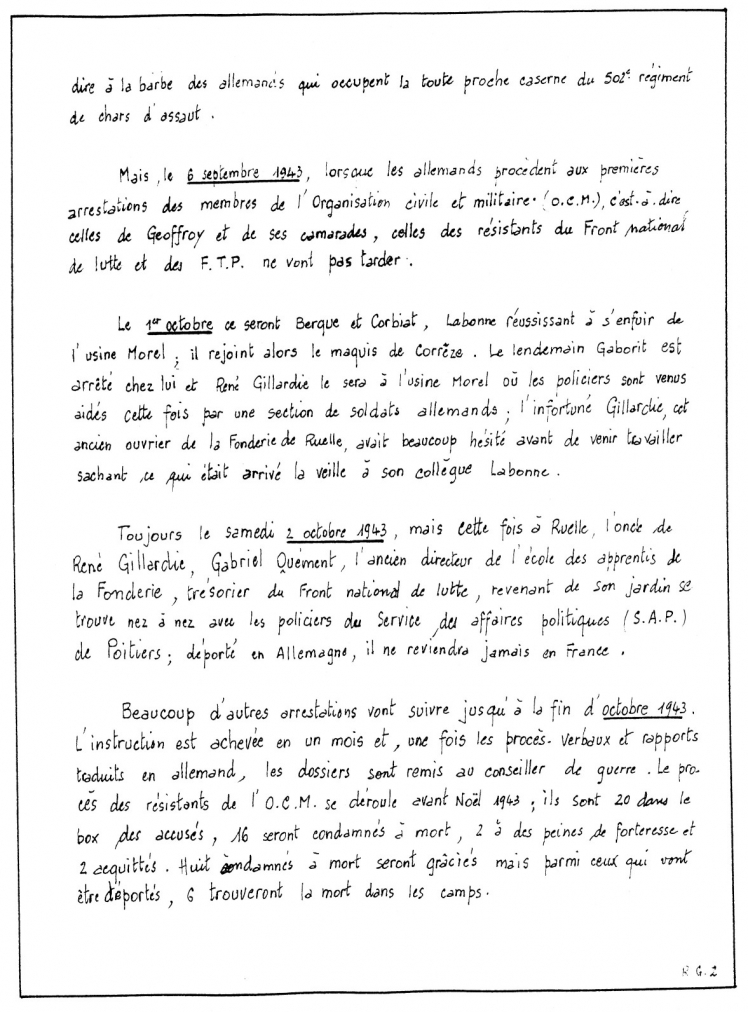 dire à la barbe des allemands qui occupent la toute proche caserne du 502e régiment
de chars d'assaut.
Mais, le 6 septembre 1943, lorsque les allemands procèdent aux premières
arrestations des membres de l'Organisation civile et militaire (O.C.M.), c'est-à-dire
celles de Geoffroy et de ses camarades, celles des résistants du Front national
de lutte et des F.T.P. ne vont pas tarder.
Le 1er octobre ce seront Berque et Corbiat, Labonne réussissant à s'enfuir de
l'usine Morel ; il rejoint alors le maquis de Corrèze. Le lendemain Gaborit est
arrêté chez lui et René Gillardie le sera à l'usine Morel où les policiers sont venus
aidés cette fois par une section de soldats allemands ; l'infortuné Gillardie, cet
ancien ouvrier de la Fonderie de Ruelle, avait beaucoup hésité avant de venir travailler
sachant ce qui était arrivé la veille à son collègue Labonne.
Toujours le samedi 2 octobre 1943, mais cette fois à Ruelle, l'oncle de
René Gillardie, Gabriel Quément, l'ancien directeur de l'école des apprentis de
la Fonderie, trésorier du Front national de lutte, revenant de son jardin se
trouve nez à nez avec les policiers du Service des affaires politiques (S.A.P.)
de Poitiers ; déporté en Allemagne, il ne reviendra jamais en France.
Beaucoup d'autres arrestations vont suivre jusqu'à la fin d'octobre 1943.
L'instruction est achevée en un mois et, une fois les procès-verbaux et rapports
traduits en allemand, les dossiers sont remis au conseiller de guerre. Le pro-
cès des résistants de l'O.C.M. se déroule avant Noël 1943 ; ils sont 20 dans le
box des accusés, 16 seront condamnés à mort, 2 à des peines de forteresse et
2 acquittés. Huit condamnés à mort seront grâciés mais parmi ceux qui vont
être déportés, 6 trouveront la mort dans les camps.
R G. 2